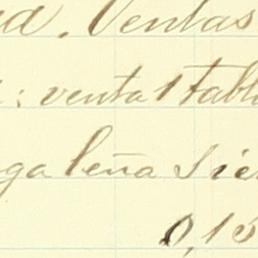 da, Ventas
: venta 1 tabl
ga leña sie
0,15